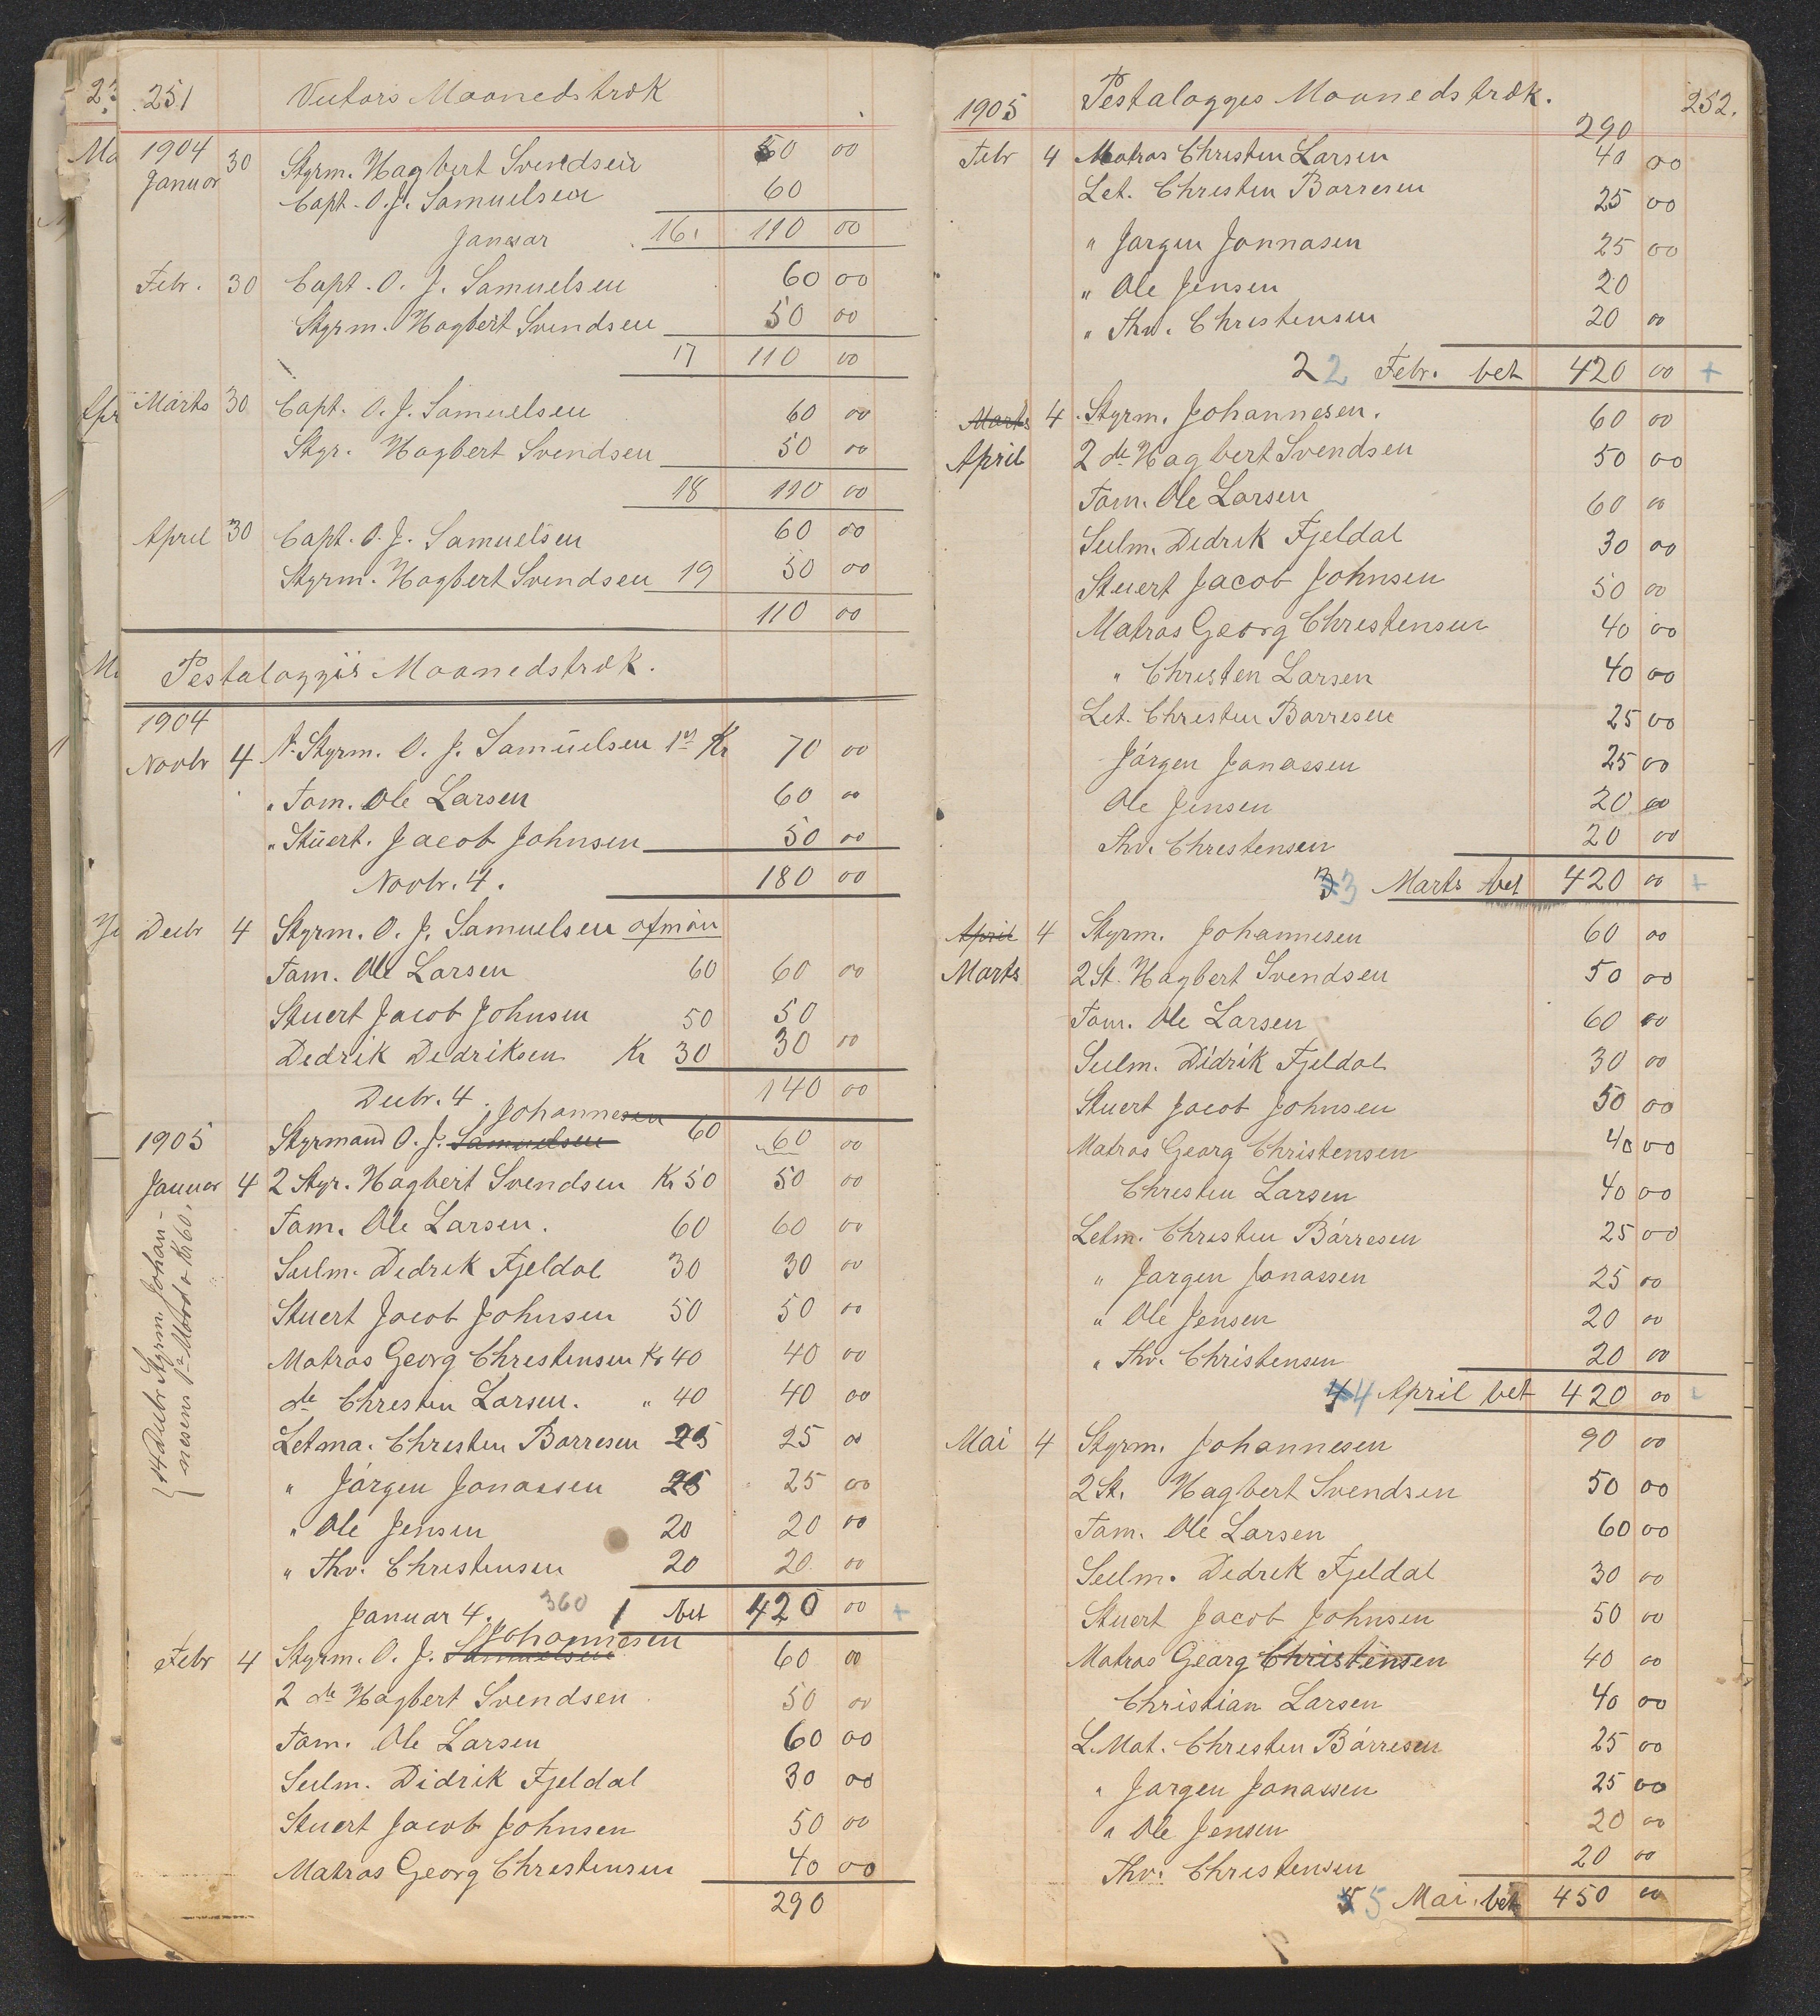 251 Victors Maanedstræk
1904
Januar 30 Styrm. Hagbert Svendsen 50 00
Capt. O. J. Samuelsen 60
Januar 16. 110 00
Febr. 30 Capt. O. J. Samuelsen 60 00
Styrm. Hagbert Svendsen 50 00
17 110 00
Marts 30 Capt. O. J. Samuelsen 60 00
Styr. Hagbert Svendsen 50 00
18 110 00
April 30 Capt. O. J. Samuelsen 60 00
Styrm. Hagbert Svendsen 19 50 00
110 00
Pestalozzis Maanedstræk.
1904
Novbr 4 Styrm. O. J. Samuelsen 1ste Kr 70 00
" Tom. Ole Larsen 60 00
" Stuert. Jacob Johnsen 50 00
Novbr. 4. 180 00
Decbr 4 Styrm. O. J. Samuelsen afmön
Tom. Ole Larsen 60 60 00
Stuert Jacob Johnsen 50 50
Dedrik Dedriksen Kr 30 30 00
Decbr. 4. 140 00
Johannesen
1905 Styrmand O. J. Samuelsen 60 60 00
Januar 4 2 Styr. Hagbert Svendsen Kr 50 50 00
Tom. Ole Larsen. 60 60 00
Seilm. Dedrek Fjeldal 30 30 00
Stuert Jacob Johnsen 50 50 00
Matros Georg Christensen Kr 40 40 00
de Christen Larsen. " 40 40 00
Letma. Christen Börresen 25 25 00
" Jörgen Jonassen 25 25 00
" Ole Jensen 20 20 00
" Thv. Christensen 20 20 00
Januar 4. 360 1 bet 420 00 +
14 Decbr Styrm. Johan-
nesens 1ste Maaned a Kr 60.
Johannesen
Febr 4 Styrm. O. J. Samuelsen 60 00
2 de Hagbert Svendsen 50 00
Tom. Ole Larsen 60 00
Seilm. Didrik Fjeldal 30 00
Stuert Jacob Johnsen 50 00
Matros Georg Christensen 40 00
290
1905 Pestalozzis Maanedstræk. 252.
290
Febr 4 Matros Christen Larsen 40 00
Let. Christen Börresen 25 00
" Jörgen Jonnasen 25 00
" Ole Jensen 20
" Thv. Christensen 20 00
2 2 Febr. bet 420 00 +
Marts 4 Styrm. Johannesen. 60 00
April 2 de Hagbert Svendsen 50 00
Tom. Ole Larsen 60 00
Seilm. Dedrik Fjeldal 30 00
Stuert Jacob Johnsen 50 00
Matros Georg Christensen 40 00
" Christen Larsen 40 00
Let. Christen Börresen 25 00
Jörgen Jonassen 25 00
Ole Jensen 20 00
Thv. Christensen 20 00
3 3 Marts bet 420 00 +
April 4 Styrm. Johannesen 60 00
Marts 2 St. Hagbert Svendsen 50 00
Tom. Ole Larsen 60 00
Seilm. Didrik Fjeldal 30 00
Stuert Jacob Johnsen 50 00
Matros Georg Christensen 40 00
Christen Larsen 40 00
Letm. Christen Börresen 25 00
" Jörgen Jonassen 25 00
" Ole Jensen 20 00
" Thv. Christensen 20 00
4 4 April bet 420 00
Mai 4 Styrm. Johannesen 90 00
2 St. Hagbert Svendsen 50 00
Tom. Ole Larsen 60 00
Seilm. Dedrek Fjeldal 30 00
Stuert Jacob Johnsen 50 00
Matros Georg Christensen 40 00
Christian Larsen 40 00
L. Mat. Christen Börresen 25 00
" Jörgen Jonassen 25 00
" Ole Jensen 20 00
Thv. Christensen 20 00
5 5 Mai. bet 450 00